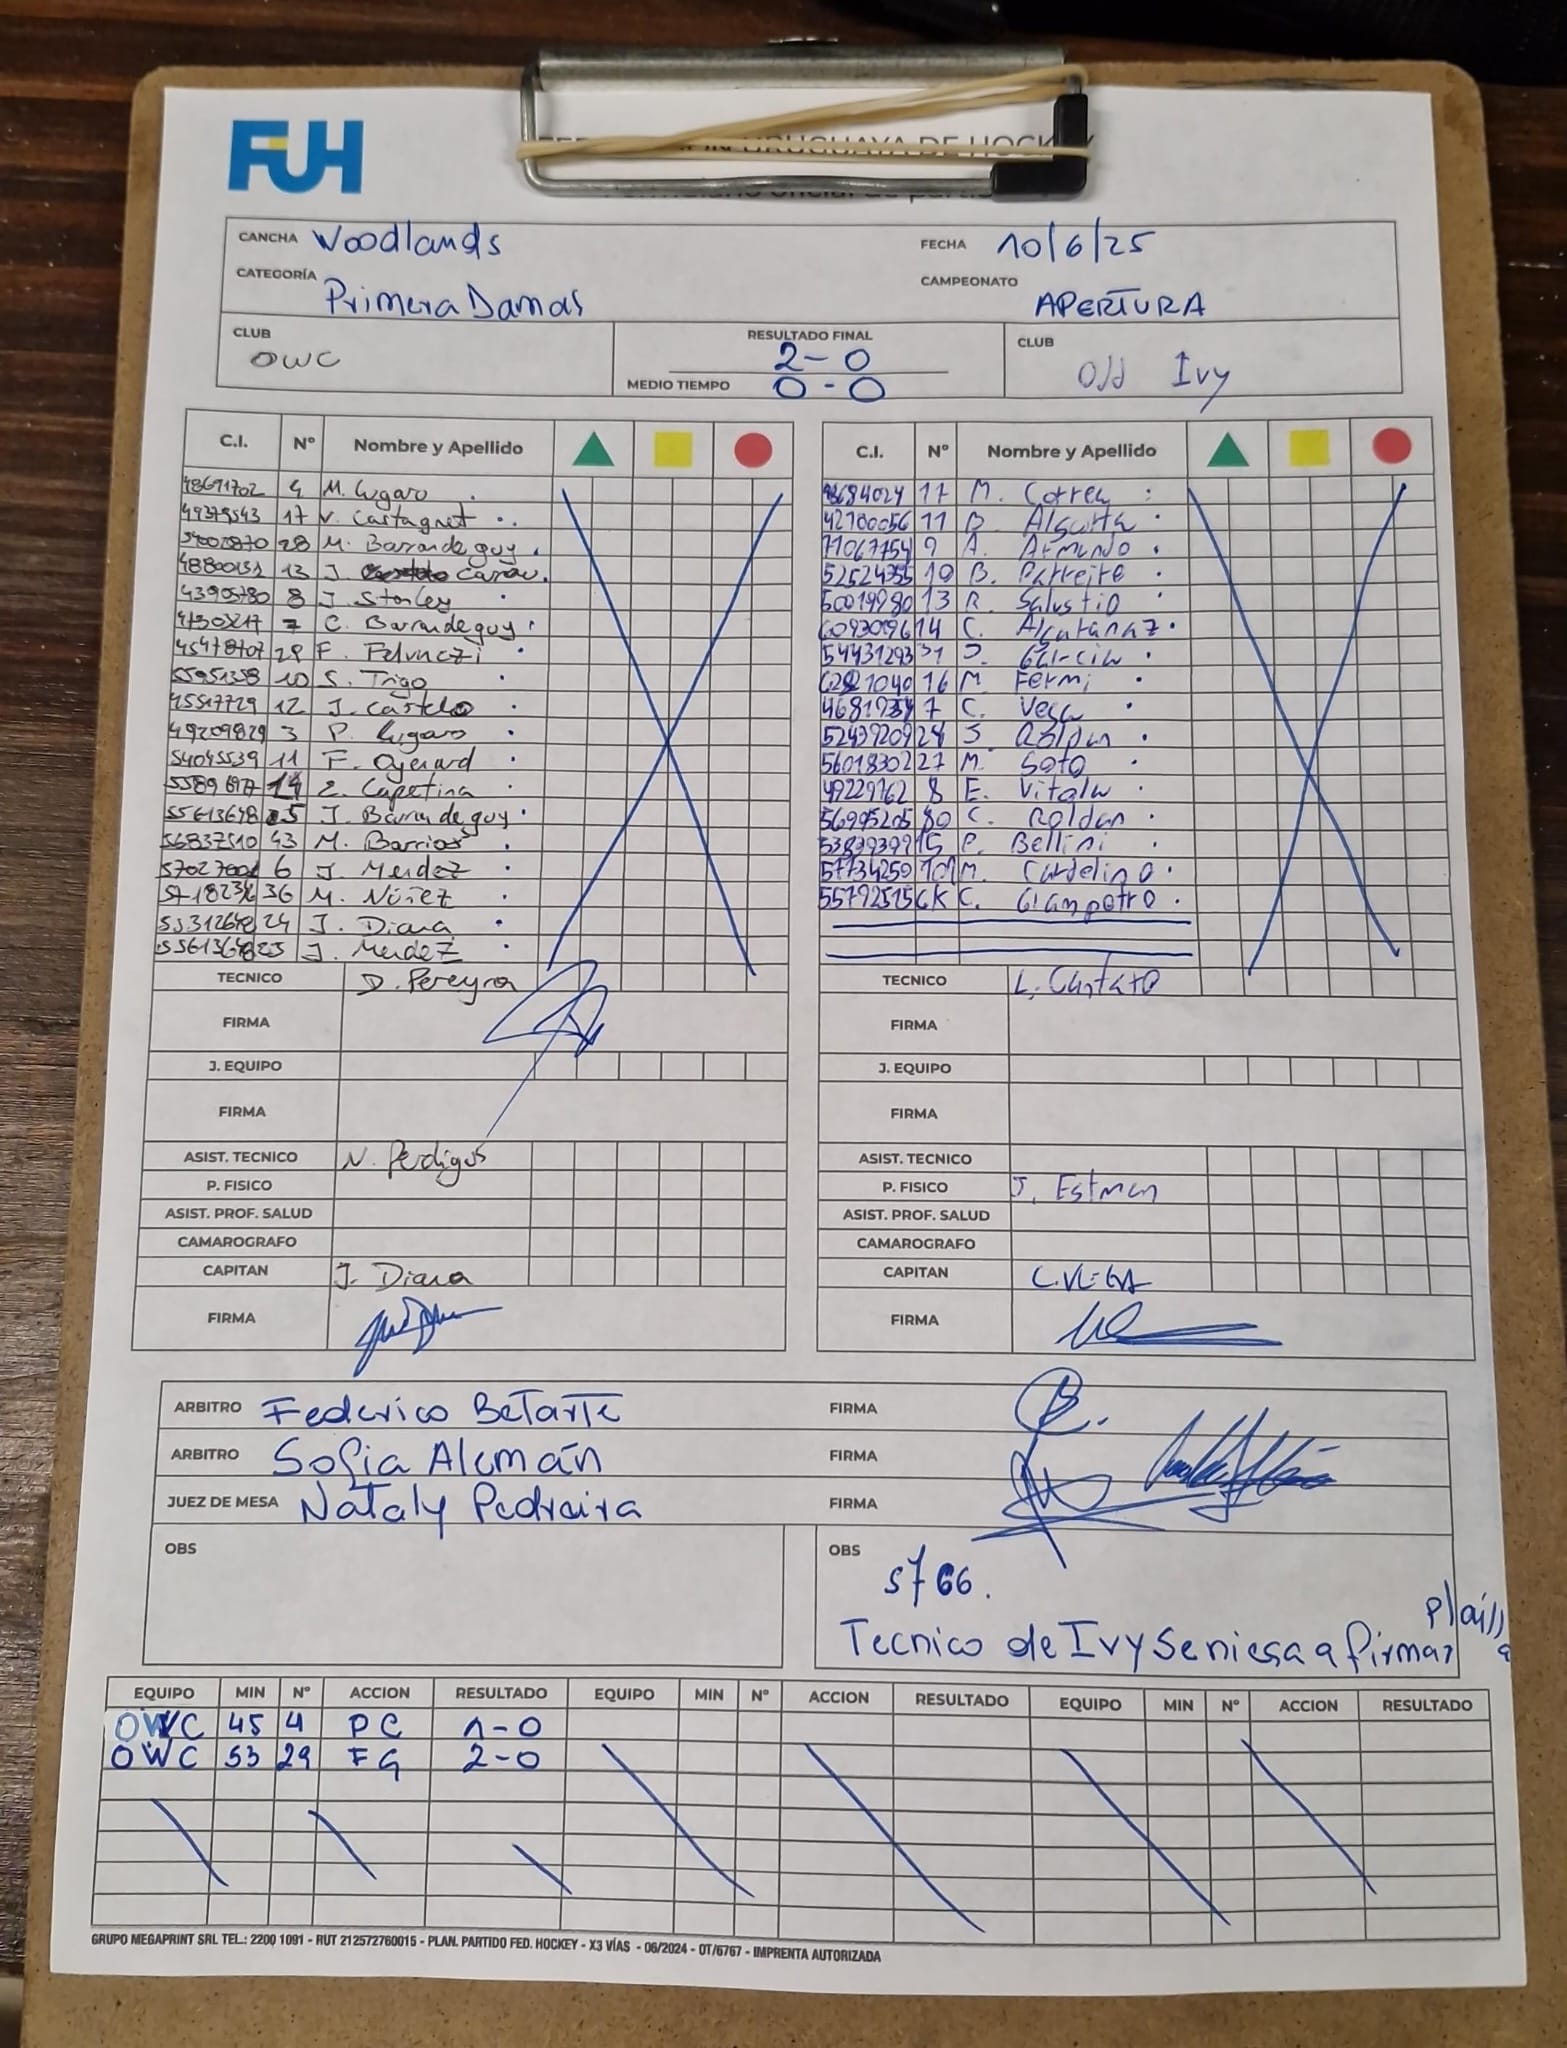 FUH
URUGUAYA DE HOCKEY
CANCHA Woodlands FECHA 10/6/25
CATEGORÍA Primera Damas CAMPEONATO APERTURA
CLUB OWC RESULTADO FINAL 2-0 CLUB Old Ivy
MEDIO TIEMPO 0-0
C.I. Nº Nombre y Apellido
48691702 4 M. Lugaro
49379543 17 V. Castagnet
28 M. Barrandeguy
13 J.
43905780 8 J. Stanley
7 C. Barrandeguy
45478707 29 F.
55951358 10 S. Trigo
45517729 12 J. Castelo
49209829 3 P. Lugaro
54045539 11 F.
14 E. Capetina
J. Barrandeguy
56837510 43 M. Barrios
6 J. Mendez
36 M. Núñez
24 J. Diana
J. Mendez
TECNICO D. Pereyra
FIRMA
J. EQUIPO
FIRMA
ASIST. TECNICO N. Perdigos
P. FISICO
ASIST. PROF. SALUD
CAMAROGRAFO
CAPITAN J. Diana
FIRMA
C.I. Nº Nombre y Apellido
17 M. Correa
42780056 11 B. Algorta
71067754 9 A. Armundo
B. Parreite
50019980 13 R. Salustio
14 C. Alcaranaz
54431293 31 J. Garcia
16 M. Fermi
7 C. Vega
52439209 24 S. Roldan
56018302 27 M. Soto
49229762 8 E. Vitola
56995205 80 C. Roldan
15 P. Bellini
57734259 M. Cardelino
55792515 GK C. Giampetro
TECNICO L. Cantato
FIRMA
J. EQUIPO
FIRMA
ASIST. TECNICO
P. FISICO J. Estman
ASIST. PROF. SALUD
CAMAROGRAFO
CAPITAN C. VEGA
FIRMA
ARBITRO Federico BeTarTE FIRMA
ARBITRO Sofia Alemán FIRMA
JUEZ DE MESA Nataly Pedreira FIRMA
OBS
OBS
Tecnico de Ivy se niega a firmar
EQUIPO MIN Nº ACCION RESULTADO EQUIPO MIN Nº ACCION RESULTADO EQUIPO MIN Nº ACCION RESULTADO
OWC 45 4 PC 1-0
OWC 53 29 FG 2-0
GRUPO MEGAPRINT SRL TEL.: 2200 1091 - RUT 212572760015 - PLAN. PARTIDO FED. HOCKEY - X3 VÍAS - 06/2024 - OT/6767 - IMPRENTA AUTORIZADA